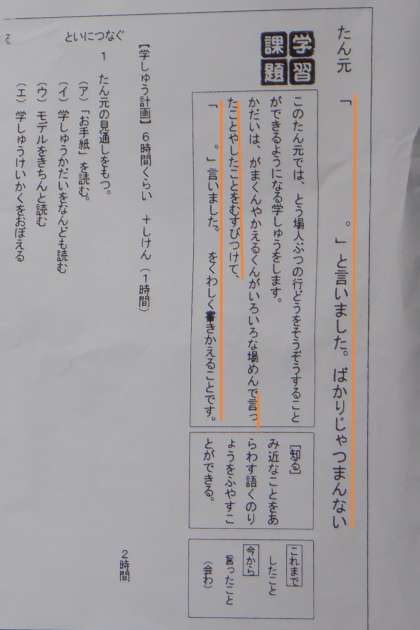 たん元
「　　　　　。」と言いました。ばかりじゃつまんない
学習
課題
このたん元では、とう場人ぶつの行どうをそうぞうすること
ができるようになる学しゅうをします。
かだいは、がまくんやかえるくんがいろいろな場めんで言っ
たことやしたことをむすびつけて、
「　　。」言いました。　をくわしく書きかえることです。
[知る]
み近なことをあ
らわす語くのり
ょうをふやすこ
とができる。
これまで
したこと
今から
言ったこと
(会わ)
【学しゅう計画】6時間くらい　＋しけん（1時間）
といにつなぐ
1　たん元の見通しをもつ。
2時間
（ア）「お手紙」を読む。
（イ）学しゅうかだいをなんども読む
（ウ）モデルをきちんと読む
（エ）学しゅうけいかくをおぼえる